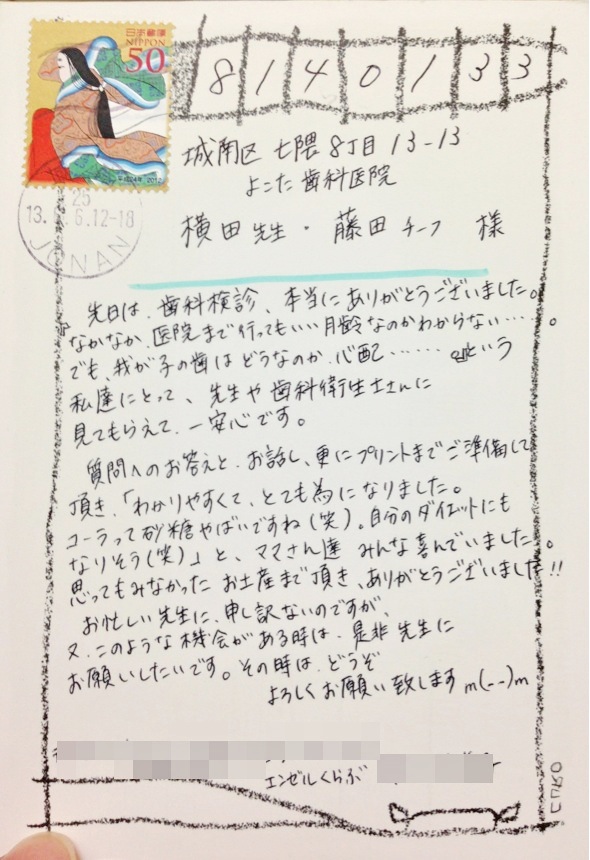 日本郵便
NIPPON
50
平成24年 2012
25
13. 6.12-18
JONAN
8140133
城南区 七隈 8丁目 13-13
よこた 歯科医院
横田 先生・藤田 チーフ 様
先日は、歯科検診、本当にありがとうございました。
なかなか、医院まで行ってもいい月齢なのかわからない……。
でも、我が子の歯はどうなのか、心配…… という
私達にとって、先生や歯科衛生士さんに
見てもらえて、一安心です。
質問へのお答えと、お話し、更にプリントまでご準備して
頂き、「わかりやすくて、とても為になりました。
コーラって砂糖やばいですね(笑)。自分のダイエットにも
なりそう(笑)」と、ママさん達 みんな喜んでいました。
思ってもみなかった お土産まで頂き、ありがとうございました!!
お忙しい先生に、申し訳ないのですが、
又、このような機会がある時は、是非先生に
お願いしたいです。その時は、どうぞ
よろしくお願い致します m(--)m
エンゼルくらぶ